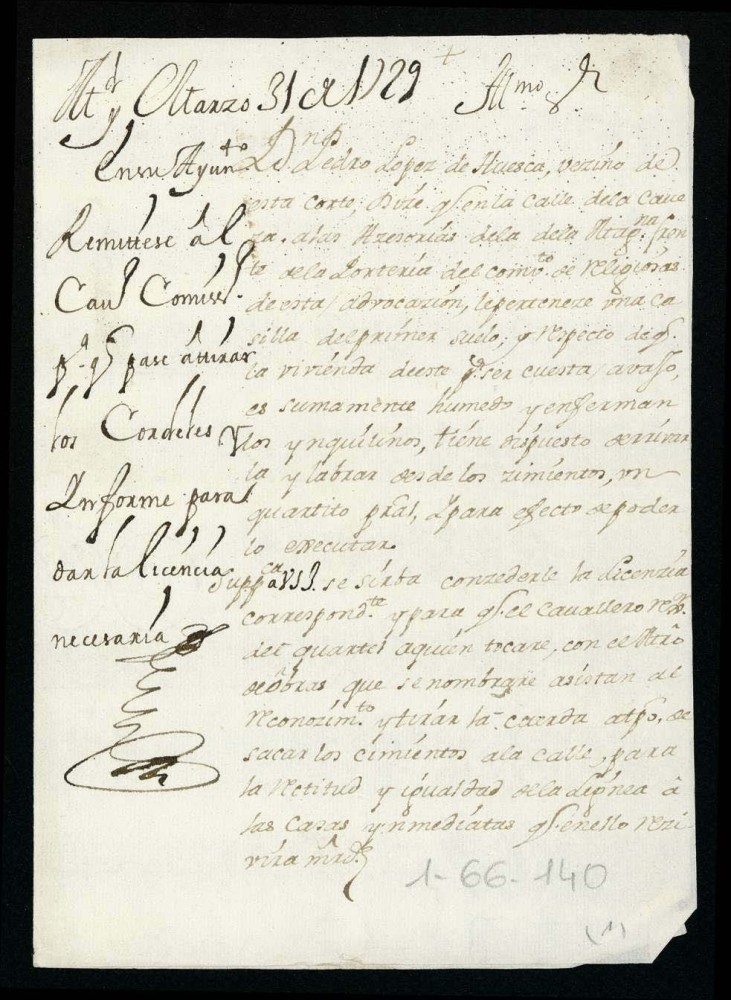 M.d y Marzo 31 de 1729
Yll.mo S.r
En su Ayun.to
Remitese âl
Cav.o Comiss.o
p.a q.e pase a tirar
los Cordeles y
Ynforme para
dar la licencia
necesaria
D.n Pedro Lopez de Huesca, vezino de
esta Corte; Dize q.e en la Calle de la Cave
za. a las Azesorias de la de la Mag.na fron
te de la Porteria del Comv.to de religiosas
de esta advocazion, le perteneze una ca
silla del primer suelo; y respecto de q.e
la vivienda de este p.r ser cuesta avajo,
es sumamente humedo y enferman
los ynquilinos, tiene dispuesto derrivar
la y labrar desde los zimientos, un
quartito pral, y para efecto de poder
lo executar
Supp.ca a VSI. se sirba conzederle la Licenzia
correspond.te y para q.e el Cavallero rex.or
del quartel a quien tocare, con el Mtro
de obras que se nombrare asistan al
reconozim.to y tirar la cuerda al tpo. de
sacar los cimientos a la Calle, para
la retitud y igualdad de la Lignea â
las Casas ynmediatas q.e en ello rezi
vira mrd.
1-66-140
(1)